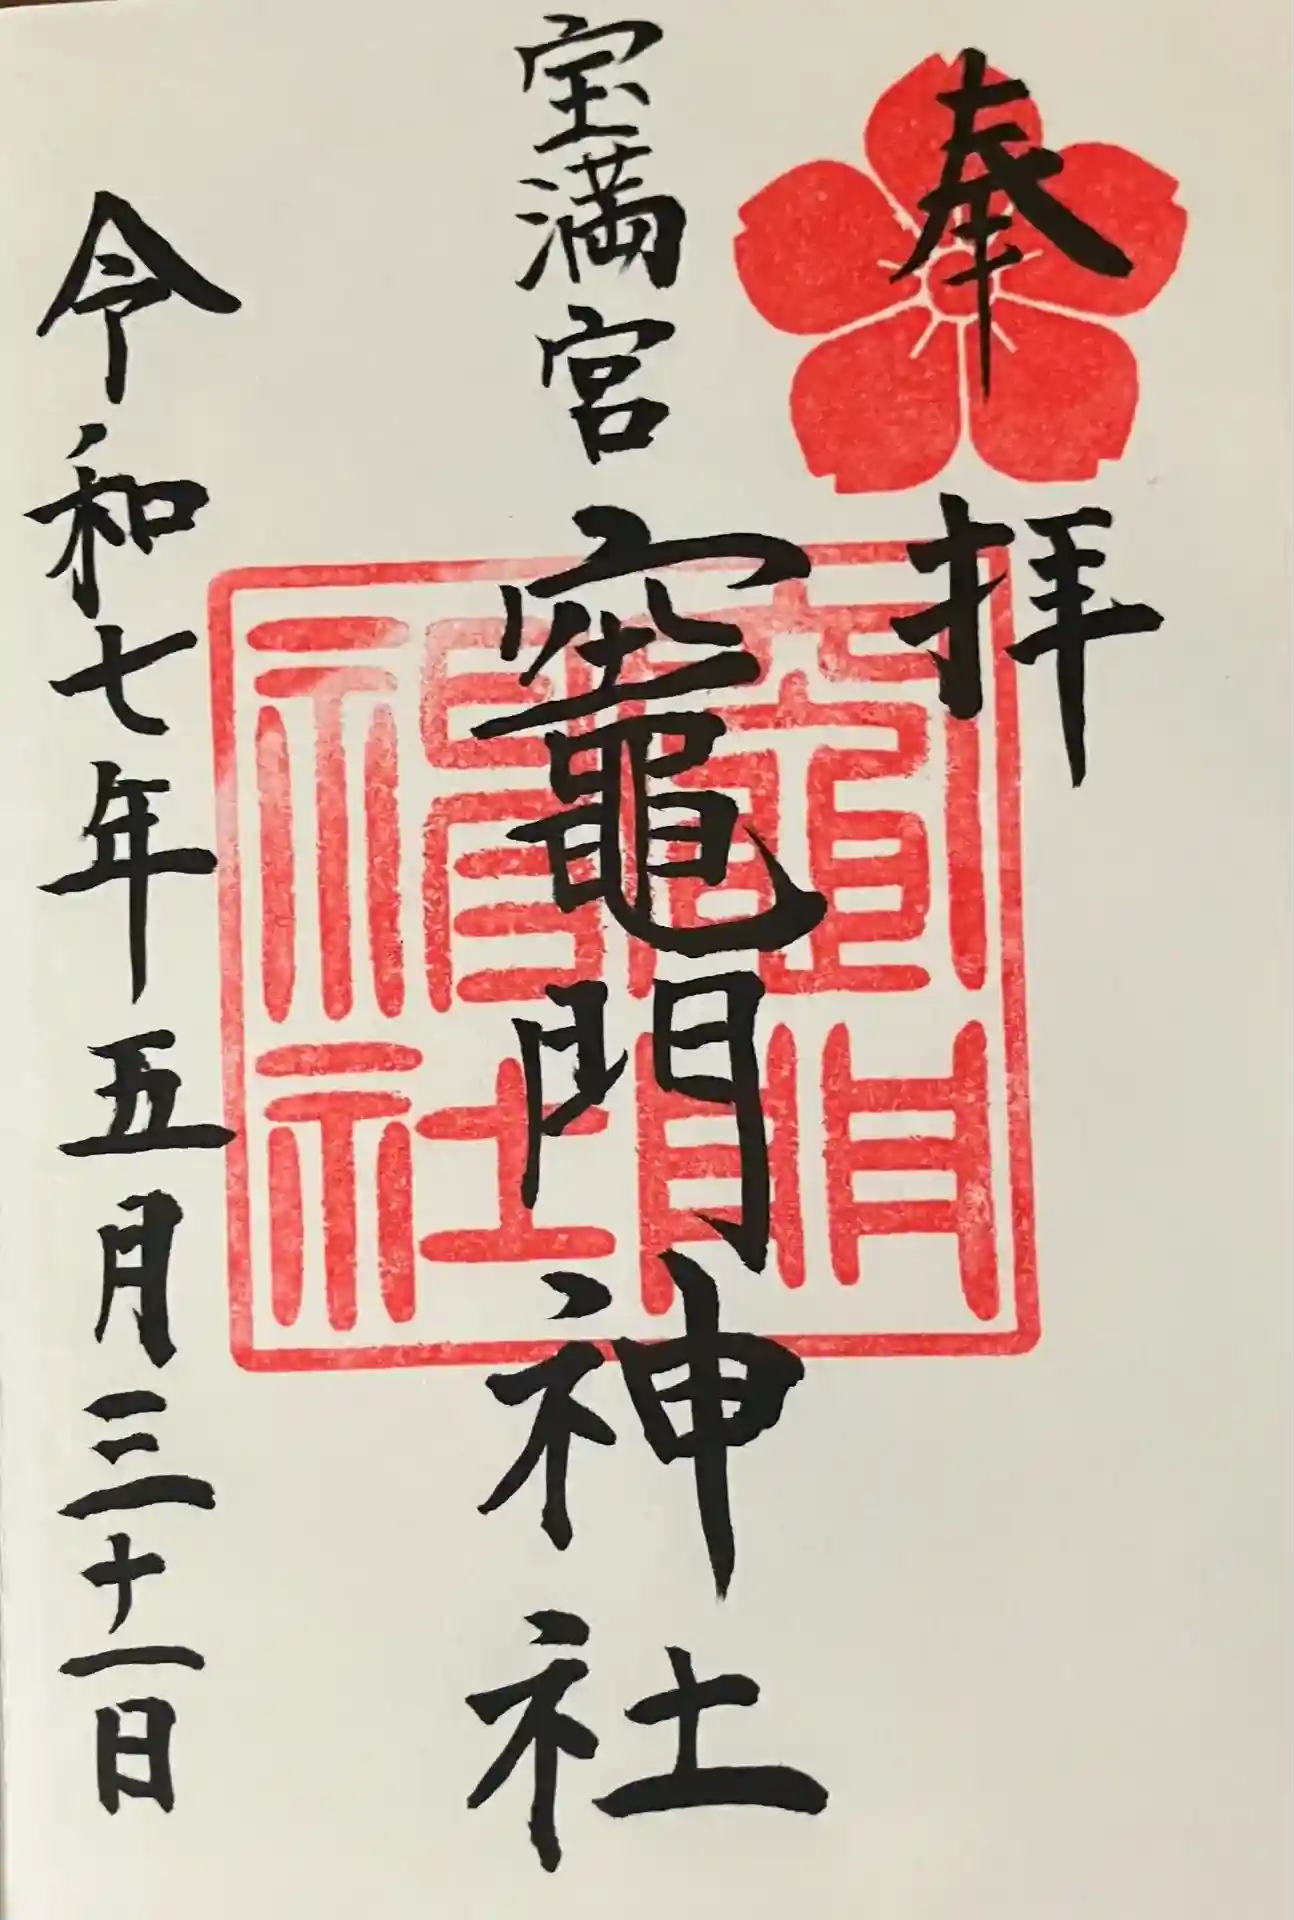 奉拝
宝満宮 竈門神社
竈門神社
令和七年五月三十一日